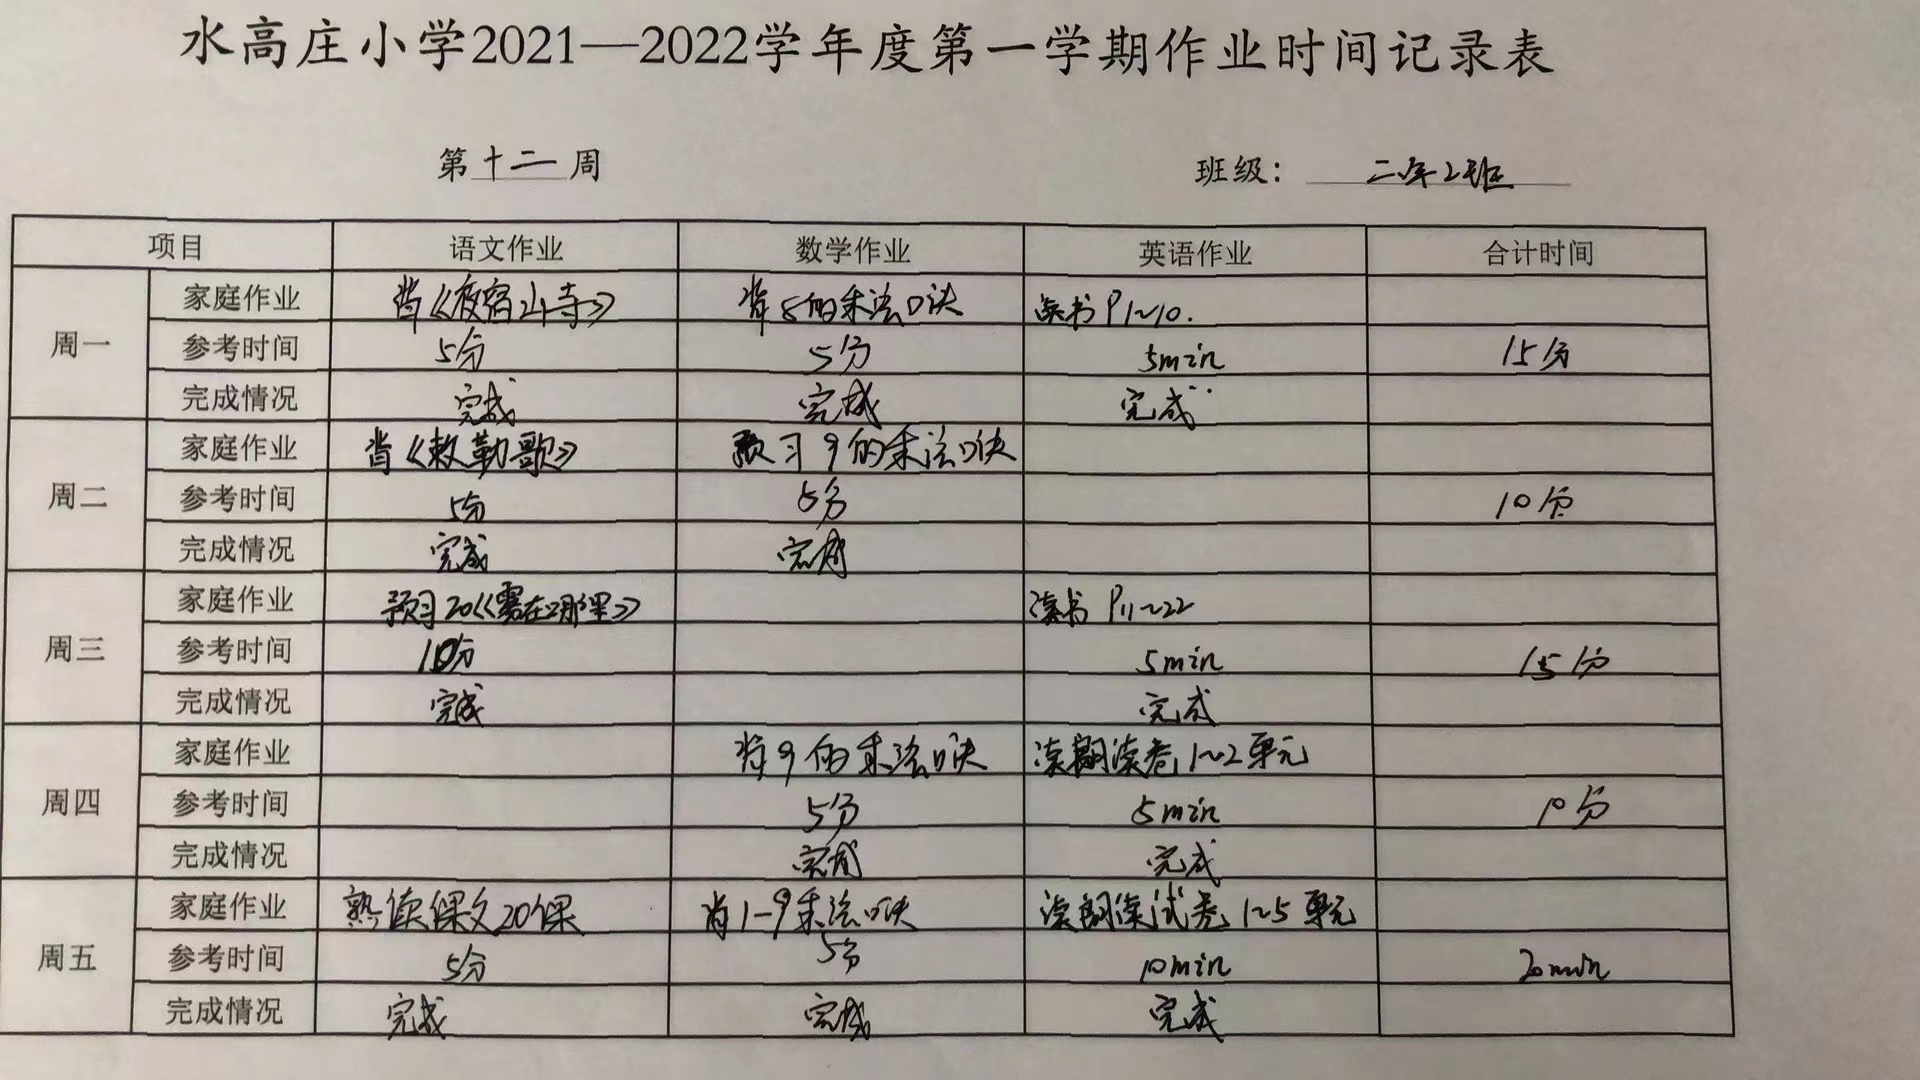 水高庄小学2021—2022学年度第一学期作业时间记录表
第十二周 班级: 二年2班
项目 语文作业 数学作业 英语作业 合计时间
周一
家庭作业 背《夜宿山寺》 背8的乘法口诀 读书P1~10.
参考时间 5分 5分 5min 15分
完成情况 完成 完成 完成
周二
家庭作业 背《敕勒歌》 预习9的乘法口诀
参考时间 5分 5分 10分
完成情况 完成 完成
周三
家庭作业 预习20《雾在哪里》 读书 P11~22
参考时间 10分 5min 15分
完成情况 完成 完成
周四
家庭作业 背9的乘法口诀 读朗读卷1~2单元
参考时间 5分 5min 10分
完成情况 完成 完成
周五
家庭作业 熟读课文20课 背1-9乘法口诀 读朗读试卷1~5单元
参考时间 5分 5分 10min 20min
完成情况 完成 完成 完成